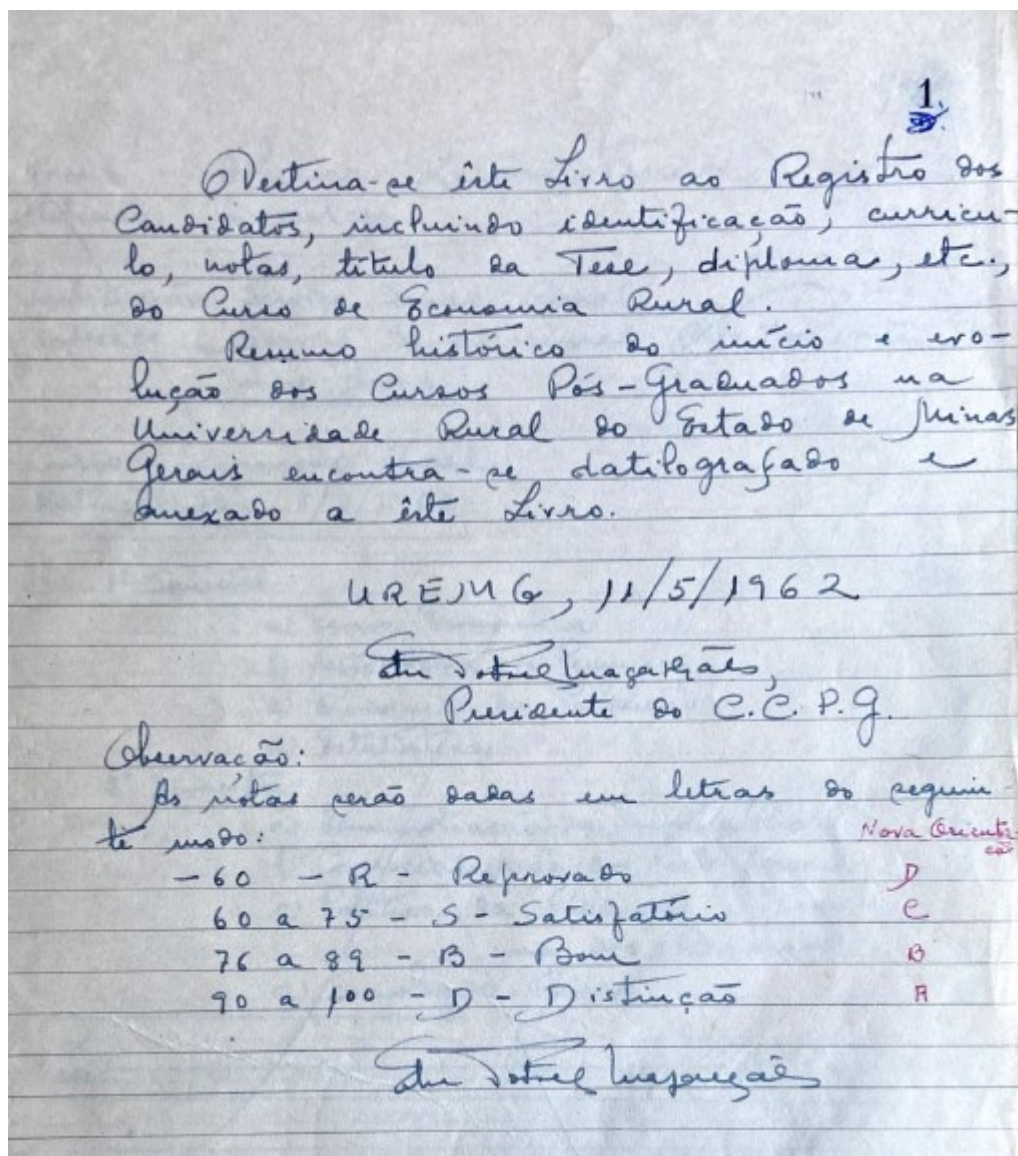 1
Destina-se êste Livro ao Registro dos
Candidatos, incluindo identificação, curricu-
lo, notas, título da Tese, diploma, etc.,
do Curso de Economia Rural.
Resumo histórico do início e evo-
lução dos Cursos Pós-Graduados na
Universidade Rural do Estado de Minas
Gerais encontra-se datilografado e
anexado a êste Livro.
UREMG, 11/5/1962
Magalhães,
Presidente do C.C.P.G.
Observação:
As notas serão dadas em letras do seguin-
te modo:
Nova Orientação
- 60 - R - Reprovado D
60 a 75 - S - Satisfatório C
76 a 89 - B - Bom B
90 a 100 - D - Distinção A
Magalhães